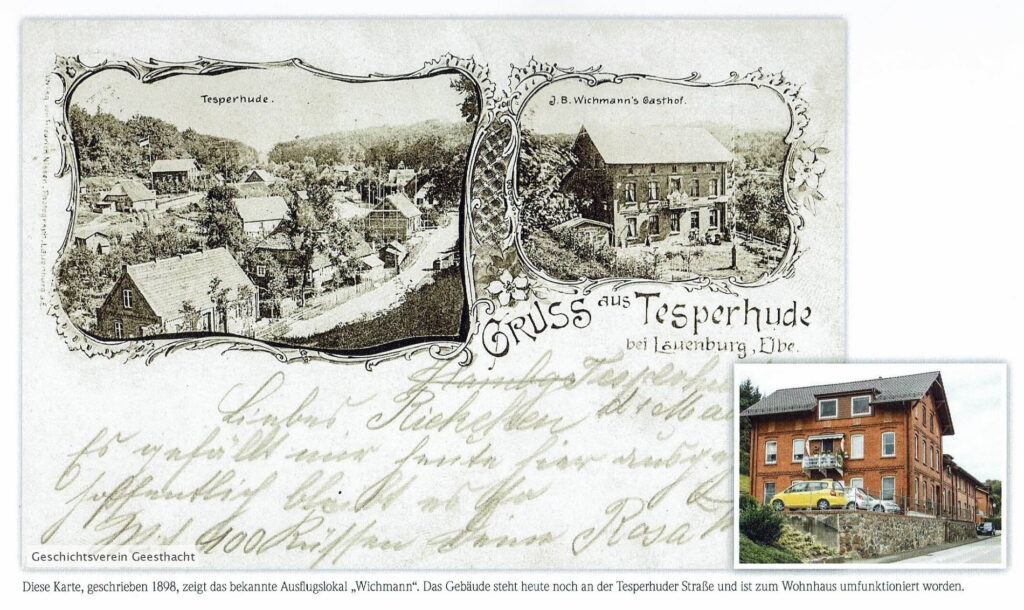 Tesperhude.
J. B. Wichmann's Gasthof.
GRUSS aus Tesperhude
bei Lauenburg, Elbe.
Hamburg Tesperhu
Liebes Riekchen
Es gefällt mir heute hier ausge
hoffentlich bleibt es so
Mit 400 Küssen Deine Rosa
Geschichtsverein Geesthacht
Diese Karte, geschrieben 1898, zeigt das bekannte Ausflugslokal „Wichmann“. Das Gebäude steht heute noch an der Tesperhuder Straße und ist zum Wohnhaus umfunktioniert worden.